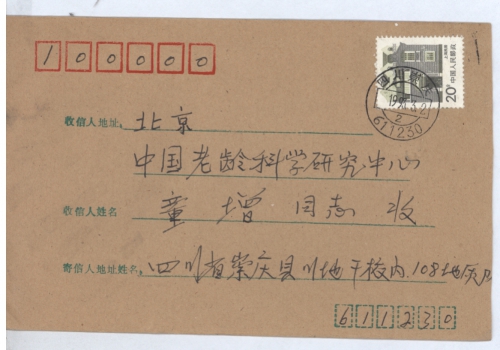 100000
20分 中国人民邮政
收信人地址: 北京
中国老龄科学研究中心
收信人姓名 童增 同志 收
寄信人地址姓名: 四川省崇庆县川地干校内108地质队
611230
611230